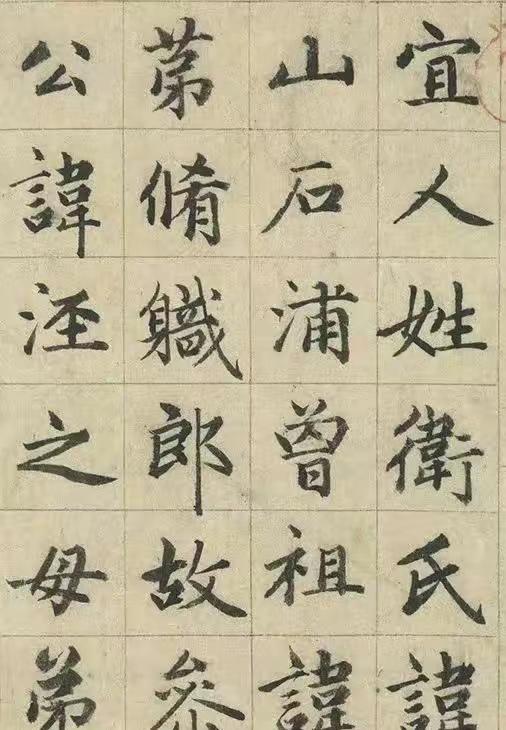 宜人姓衛氏諱
山石浦曾祖諱
苐脩軄郎故參
公諱涇之母弟